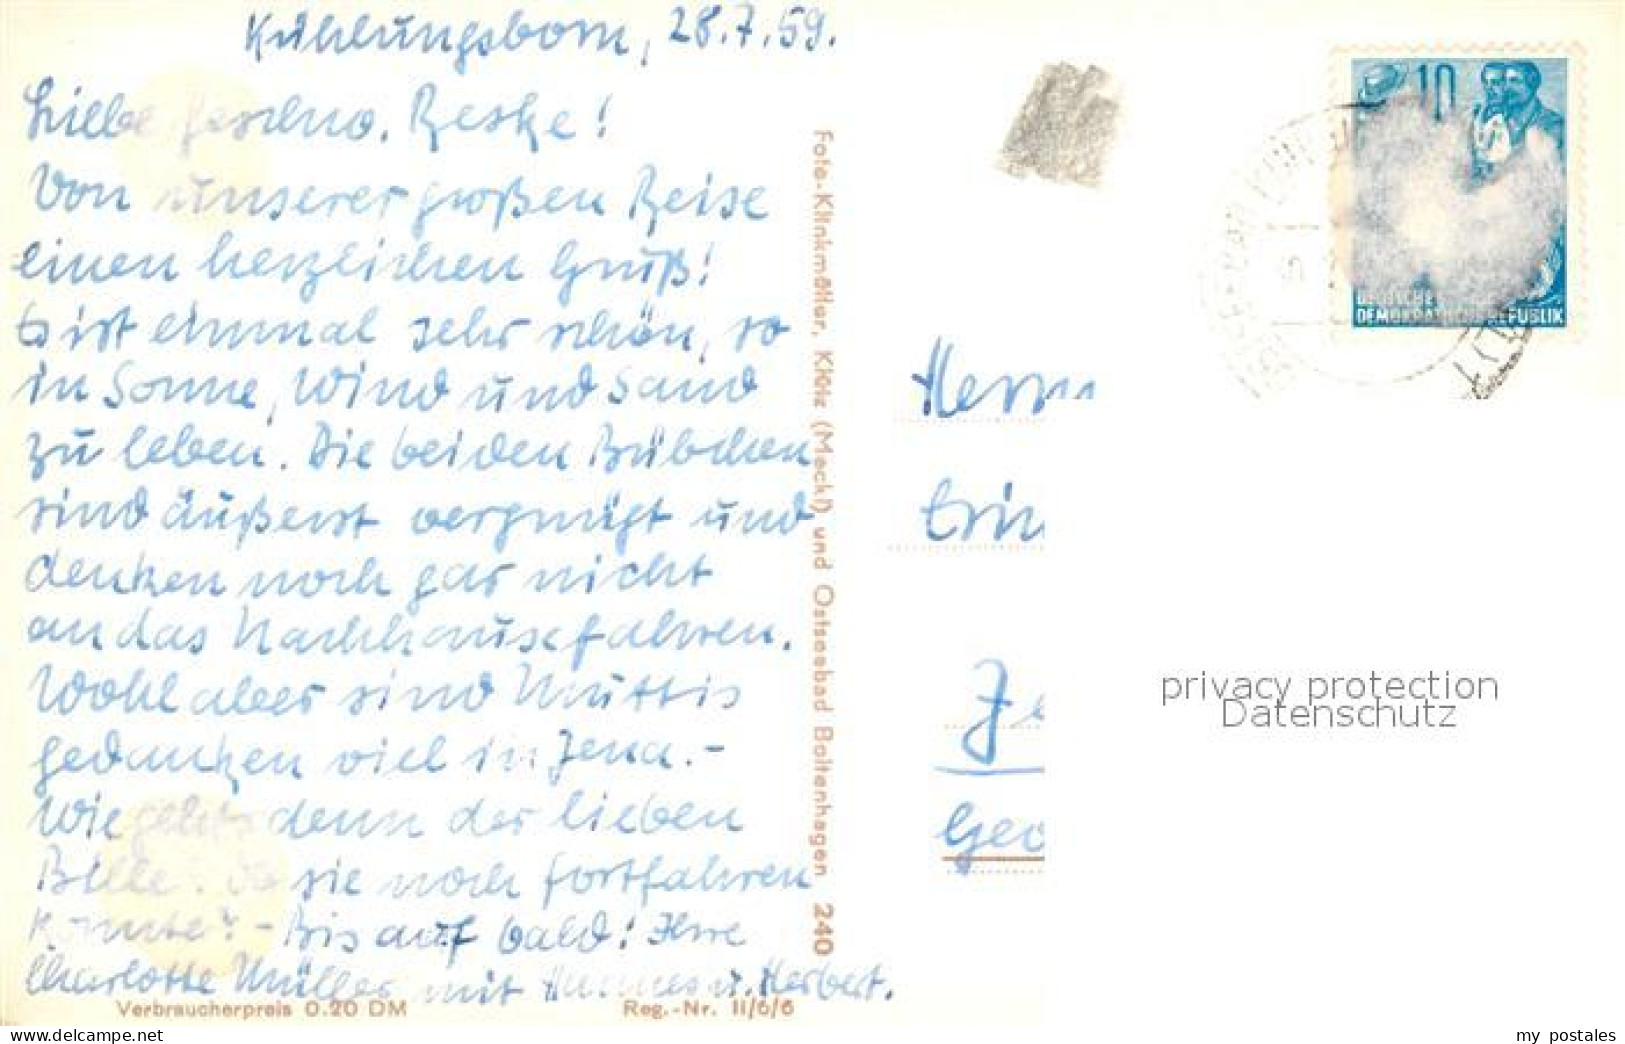 Kühlungsborn, 28.7.59.
Liebe Reske!
Von unserer großen Reise
einen herzlichen Gruß!
Es ist einmal sehr schön, so
in Sonne, Wind und Sand
zu leben. Die beiden Bübchen
sind äußerst vergnügt und
denken noch gar nicht
an das Nachhausefahren.
Wohl aber sind Muttis
Gedanken viel in Jena.-
Wie gehts denn der lieben
Bille? Ob sie noch fortfahren
konnte? - Bis auf bald! Ihre
Charlotte Müller mit Hannes u. Herbert.
Verbraucherpreis 0.20 DM
Reg.-Nr. II/6/6
Foto-Klinkmöller, Klütz (Meckl) und Ostseebad Boltenhagen 240
10
DEUTSCHE
DEMOKRATISCHE REPUBLIK
Herrn
Je
privacy protection
Datenschutz
www.oldthing.de
my postales